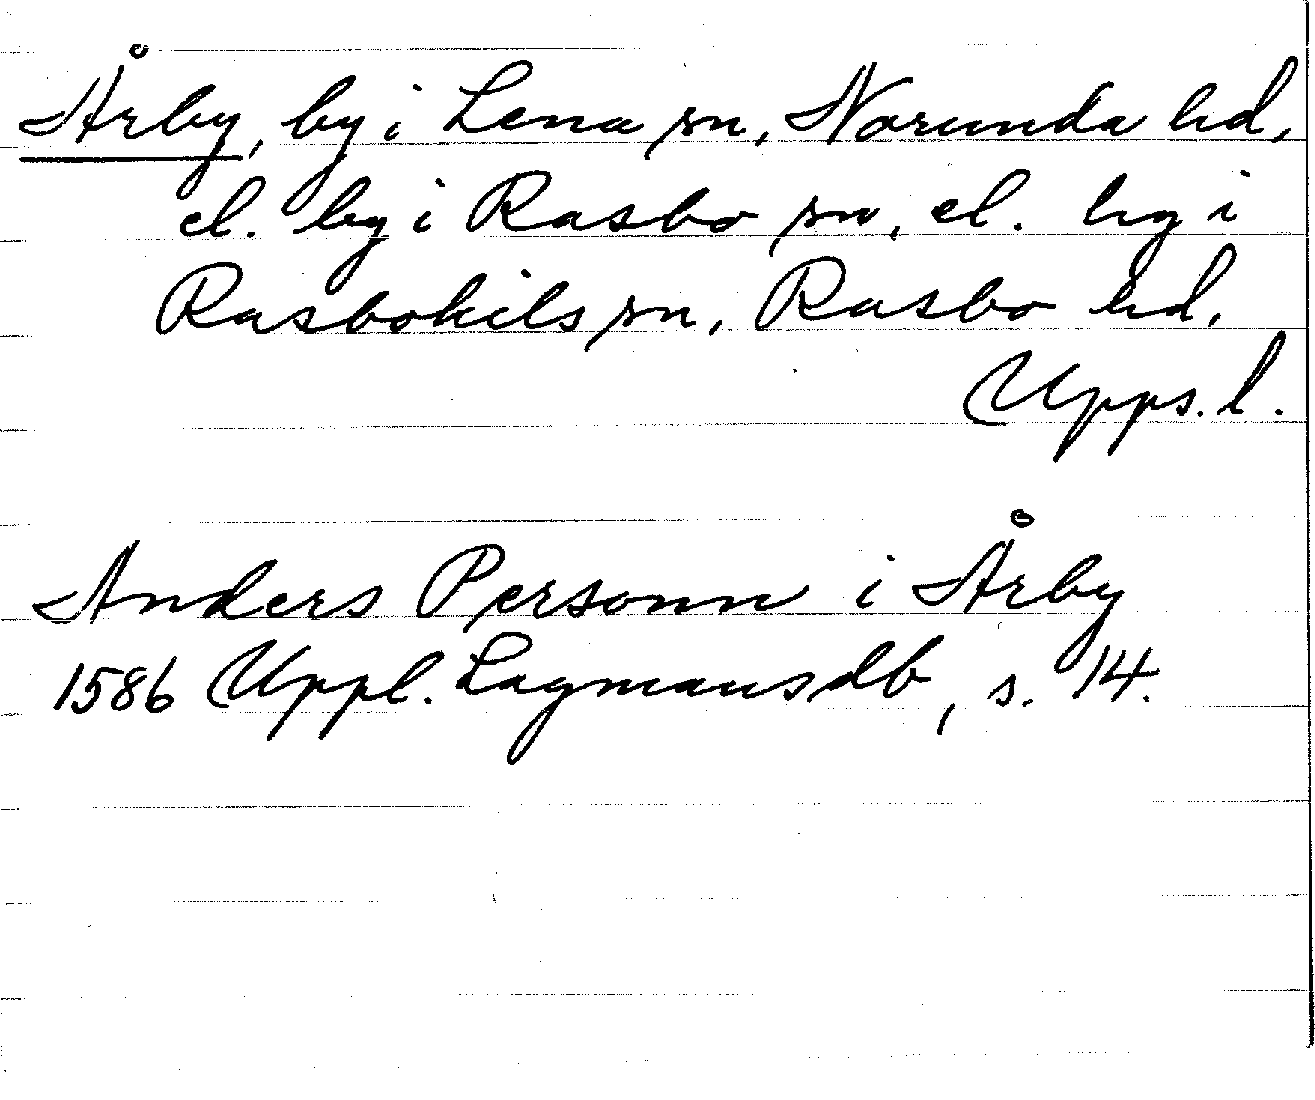 Årby, by i Lena sn, Norunda hd,
el. by i Rasbo sn, el. by i
Rasbokils sn, Rasbo hd,
Upps. l.
Anders Personn i Årby
1586 Uppl. Lagmansdb, s. 14.